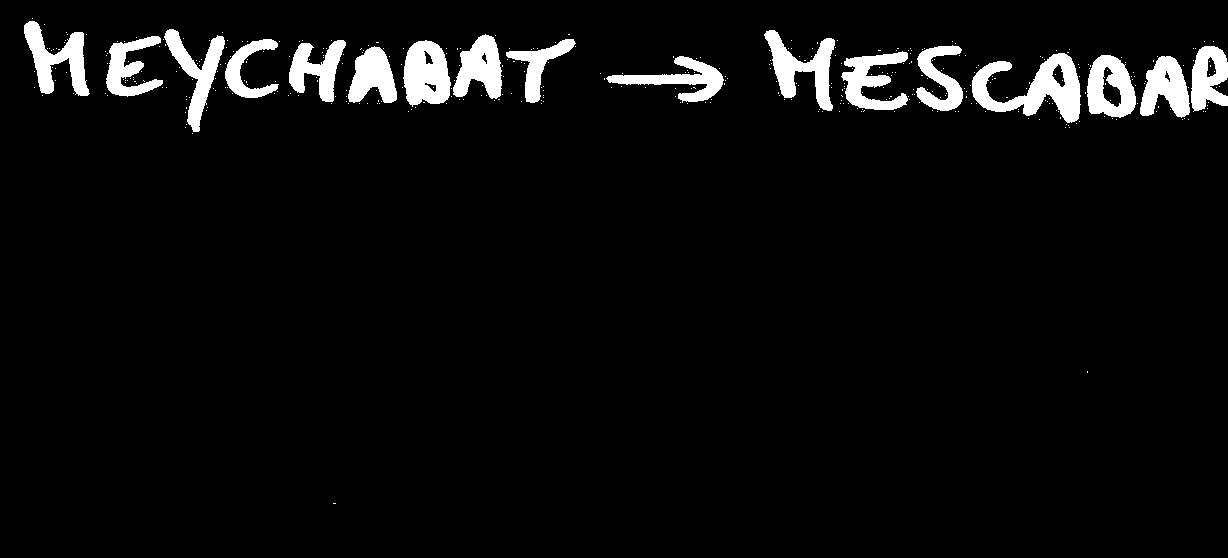 MEYCHABAT → MESCABAR